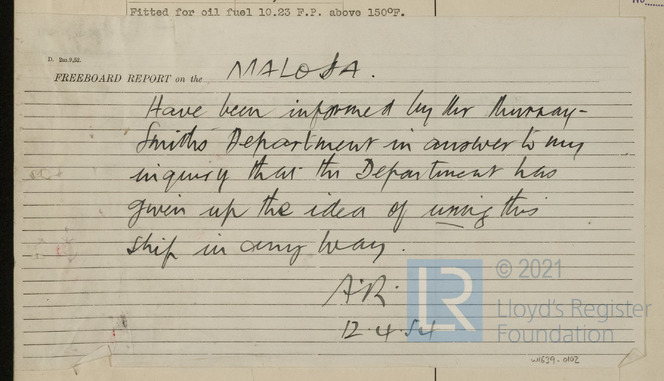 Fitted for oil fuel 10.23 F.P. above 150°F.
D. 2m.9,52.
FREEBOARD REPORT on the MALOJA.
Have been informed by Mr Murray-
Smith's Department in answer to my
inquiry that the Department has
given up the idea of using this
ship in any way.
A.R.
12.4.54
© 2021
LR
Lloyd's Register
Foundation
W1629-0102